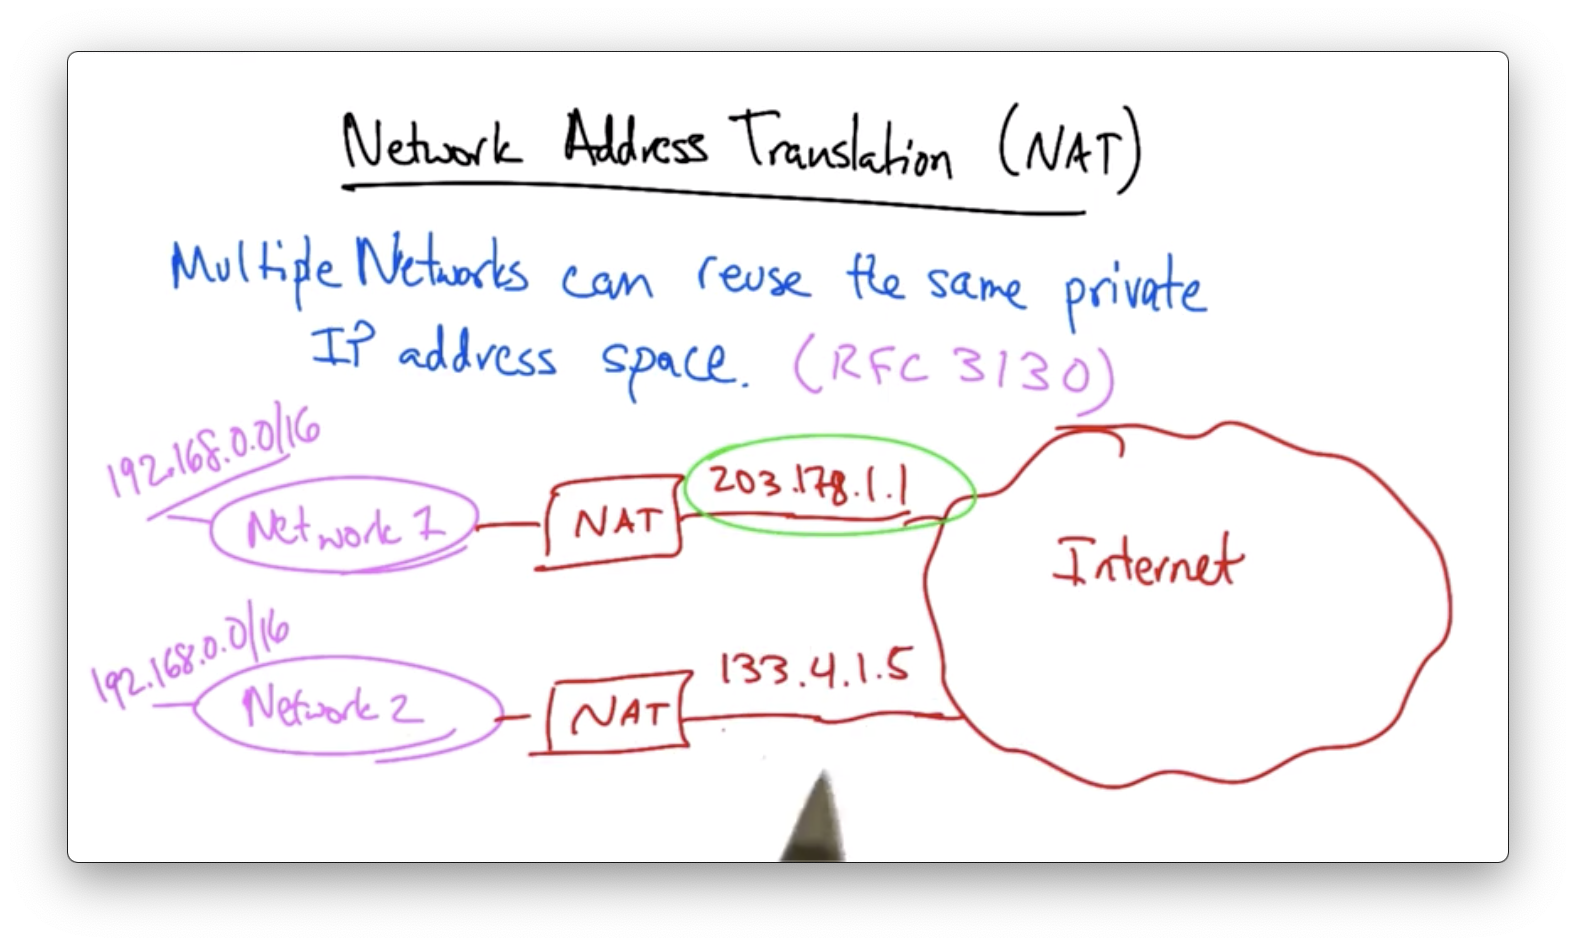 Network Address Translation (NAT)
Multiple Networks can reuse the same private
IP address space. (RFC 3130)
192.168.0.0/16
Network 1
NAT
203.178.1.1
Internet
192.168.0.0/16
Network 2
NAT
133.4.1.5